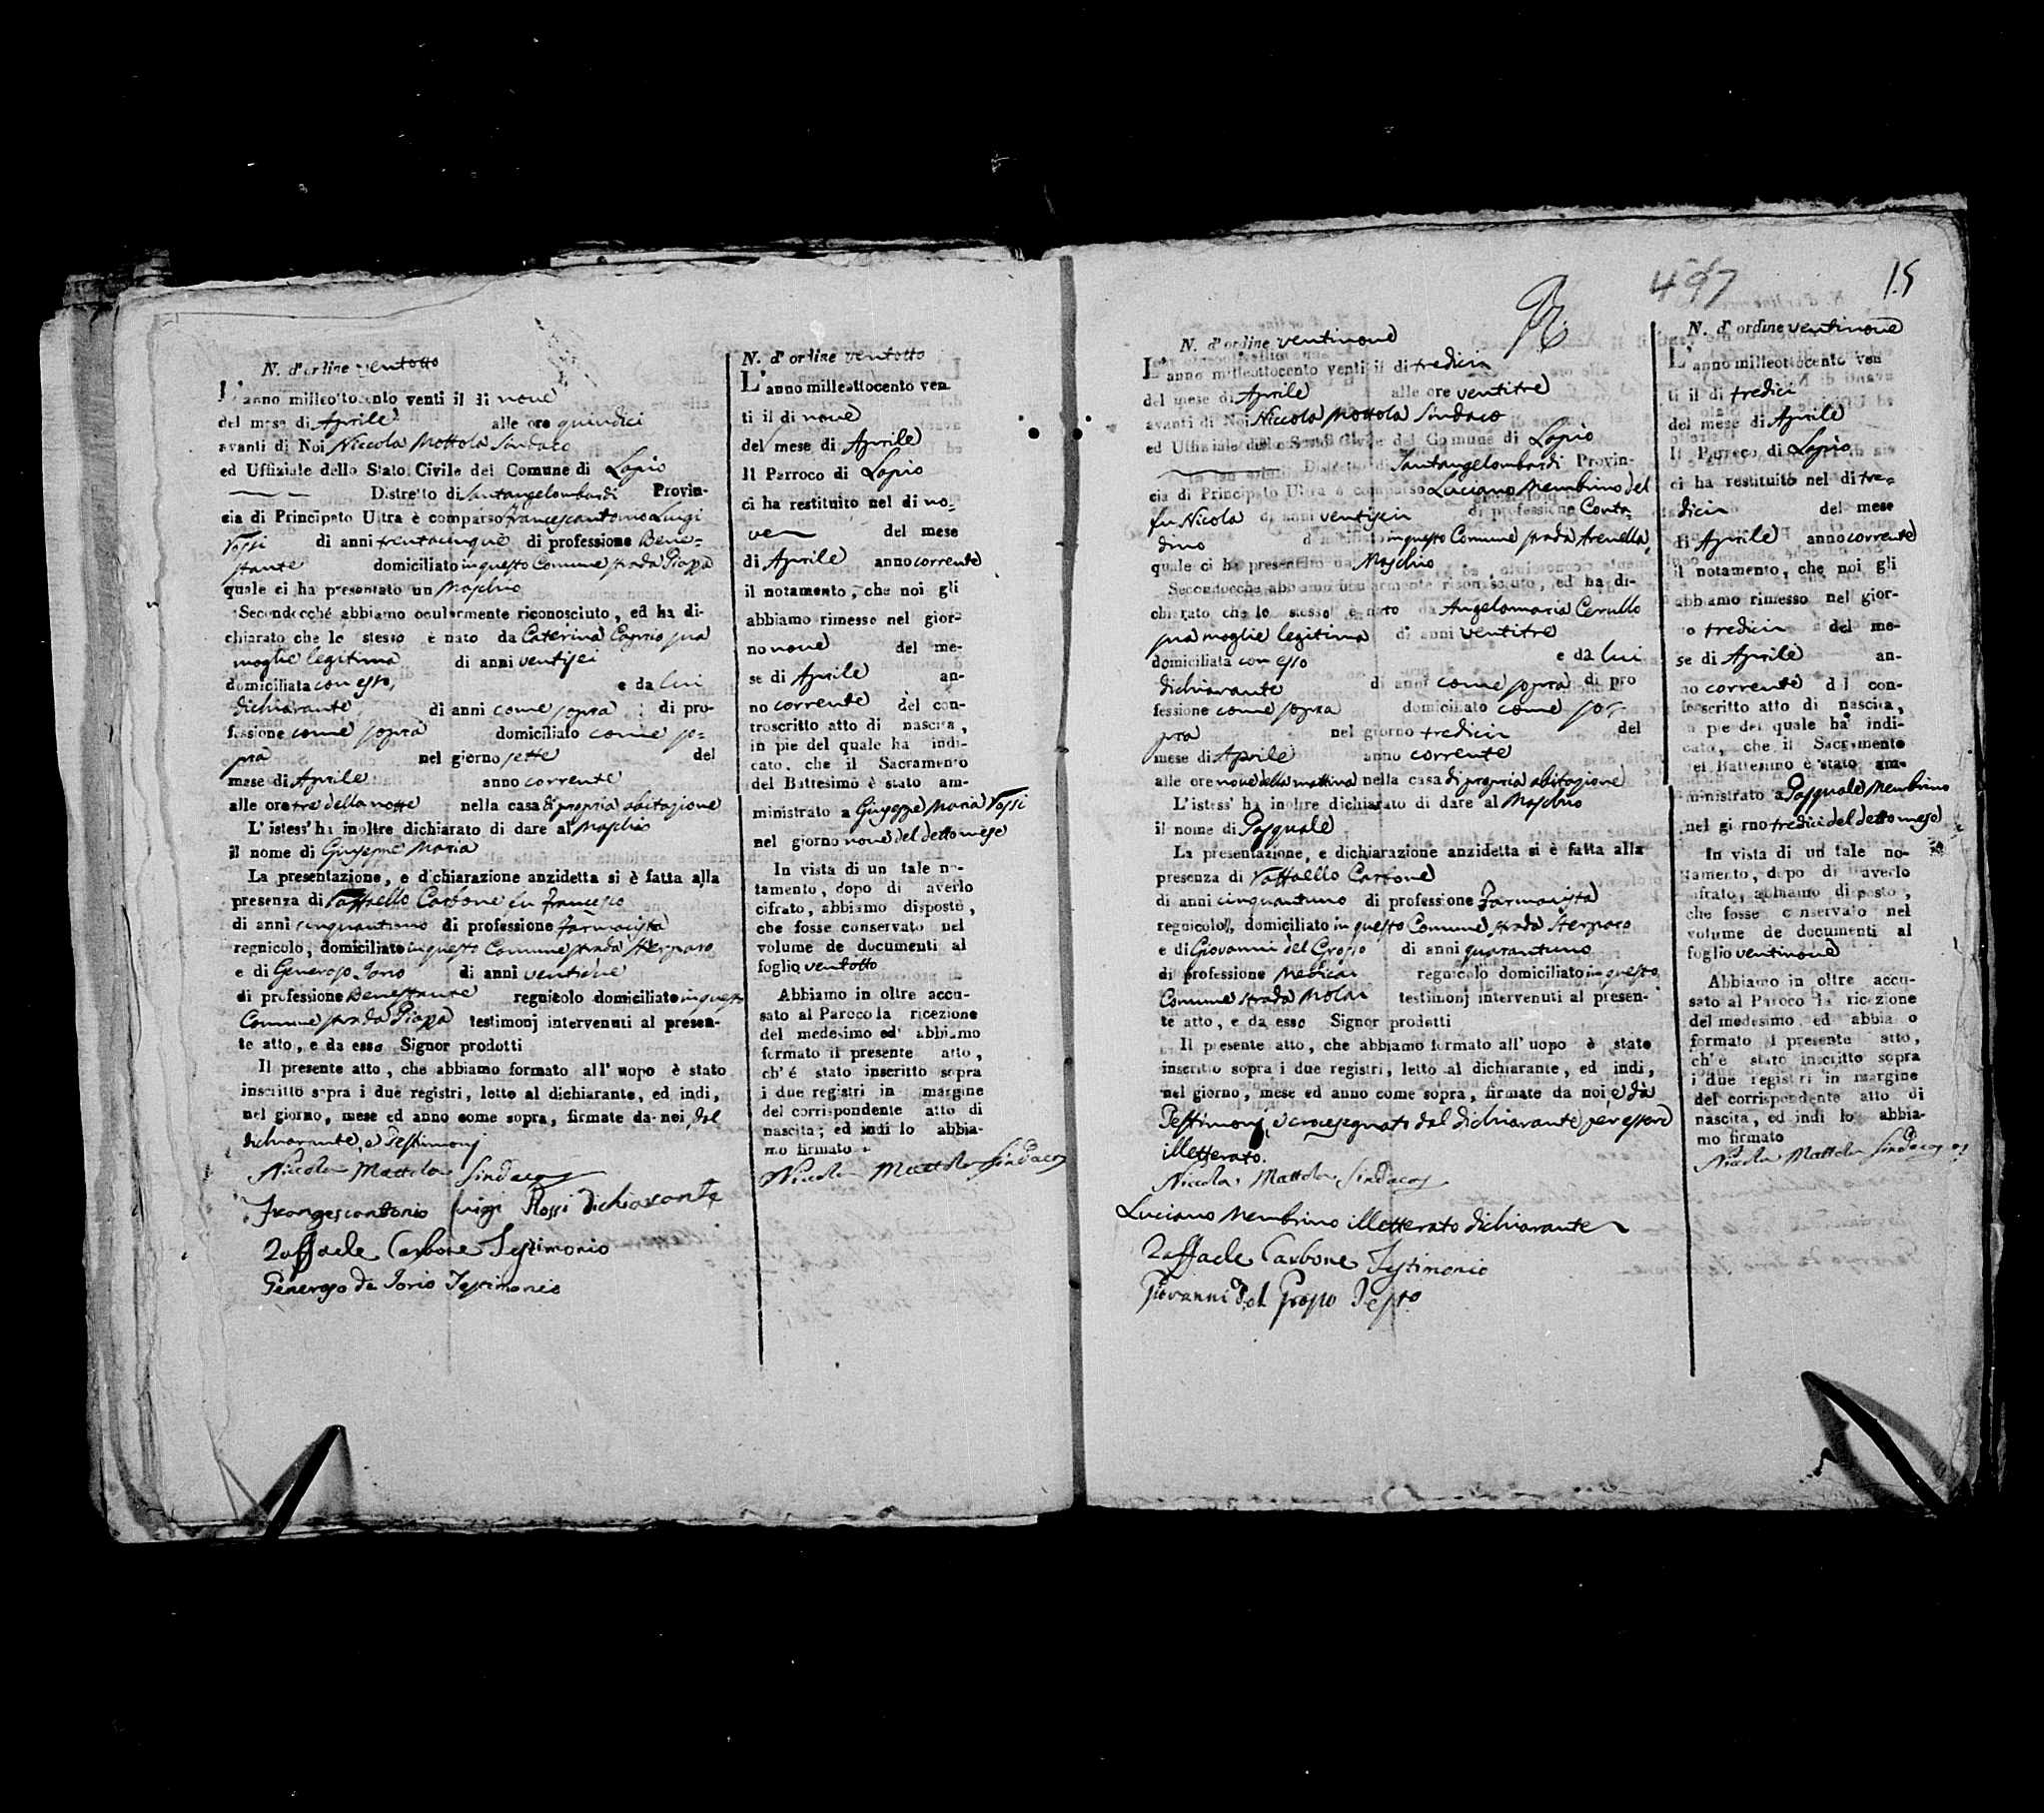 N. d'ordine ventotto
L'anno milleottocento venti il di nove
del mese di Aprile alle ore quindici
avanti di Noi Niccola Mottola Sindaco
ed Uffiziale dello Stato Civile del Comune di Lapio
Distretto di Santangelombardi Provin-
cia di Principato Ultra è comparso Francescantonio Luigi
Rossi di anni trentacinque di professione Bene=
stante domiciliato in questo Comune strada Piazza
quale ci ha presentato un Maschio
Secondocché abbiamo ocularmente riconosciuto, ed ha di-
chiarato che lo stesso è nato da Caterina Caprio sua
moglie legitima di anni ventisei
domiciliata con esso, e da lui
dichiarante di anni come sopra di pro-
fessione come sopra domiciliato come so=
pra nel giorno sette del
mese di Aprile anno corrente
alle ore tre della notte nella casa di propria abitazione
L'istess' ha inoltre dichiarato di dare al Maschio
il nome di Giuseppe Maria
La presentazione, e dichiarazione anzidetta si è fatta alla
presenza di Raffaello Carbone fu Francesco
di anni cinquantuno di professione Farmacista
regnicolo, domiciliato in questo Comune strada Sterparo
e di Generoso Iorio di anni
di professione Benestante regnicolo domiciliato in questo
Comune strada Piazza testimonj intervenuti al presen-
te atto, e da esso Signor prodotti
Il presente atto, che abbiamo formato all' uopo è stato
inscritto sopra i due registri, letto al dichiarante, ed indi,
nel giorno, mese ed anno come sopra, firmate da noi, dal
dichiarante, e Testimonj
Niccola Mattola Sindaco
Frangescantonio Luigi Rossi Dichiarante
Raffaele Carbone Testimonio
Generoso de Iorio Testimonio
N. d' ordine ventotto
L'anno milleottocento ven-
ti il di nove
del mese di Aprile
Il Parroco di Lapio
ci ha restituito nel di no=
ve del mese
di Aprile anno corrente
il notamento, che noi gli
abbiamo rimesso nel gior-
no nove del me-
se di Aprile an-
no corrente del con-
troscritto atto di nascita,
in pie del quale ha indi-
cato, che il Sacramento
del Battesimo è stato am-
ministrato a Giuseppe Maria Rossi
nel giorno nove del detto mese
In vista di un tale no-
tamento, dopo di averlo
cifrato, abbiamo disposto,
che fosse conservato nel
volume de documenti al
foglio ventotto
Abbiamo in oltre accu-
sato al Paroco la ricezione
del medesimo ed abbiamo
formato il presente atto,
ch'é stato inscritto sopra
i due registri in margine
del corrispondente atto di
nascita; ed indi lo abbia-
mo firmato
Niccola Mattola Sindaco
497
15
N. d' ordine ventinove
L'anno milleottocento venti il di tredici
del mese di Aprile alle ore ventitre
avanti di Noi Niccola Mottola Sindaco
ed Uffiziale dello Stato Civile del Comune di Lapio
Distretto di Santangelombardi Provin-
cia di Principato Ultra è comparso Luciano Membrino del
fu Nicola di anni ventisein di professione Conta
dino domiciliato in questo Comune strada Arenella,
quale ci ha presentato un Maschio
Secondocche abbiamo ocularmente riconosciuto, ed ha di-
chiarato che lo stesso è nato da Angelomaria Cerullo
sua moglie legitima di anni ventitre
domiciliata con esso e da lui
dichiarante di anni come sopra di pro
fessione come sopra domiciliato come so=
pra nel giorno tredicin del
mese di Aprile anno corrente
alle ore nove della mattina nella casa di propria abitazione
L'istess' ha inoltre dichiarato di dare al Maschio
il nome di Pasquale
La presentazione, e dichiarazione anzidetta si è fatta alla
presenza di Raffaello Carbone
di anni cinquantuno di professione Farmacista
regnicolo, domiciliato in questo Comune strada Sterparo
e di Giovanni del Grosso di anni quarantuno
di professione Medico regnicolo domiciliato in questo
Comune strada Molar testimonj intervenuti al presen-
te atto, e da esso Signor prodotti
Il presente atto, che abbiamo formato all' uopo è stato
inscritto sopra i due registri, letto al dichiarante, ed indi,
nel giorno, mese ed anno come sopra, firmate da noi, e da
Testimonj, e crocesegnato dal dichiarante per essere
illetterato.
Niccola Mattola Sindaco
Luciano Membrino illetterato dichiarante
Raffaele Carbone Testimonio
Giovanni del Grosso Testo
N. d' ordine ventinove
L'anno milleottocento ven
ti il di tredici
del mese di Aprile
Il Parroco di Lapio
ci ha restituito nel di tre=
dicin del mese
di Aprile anno corrente
il notamento, che noi gli
abbiamo rimesso nel gior-
no tredicin del me-
se di Aprile an-
no corrente del con-
troscritto atto di nascita,
in pie del quale ha indi-
cato, che il Sacramento
del Battesimo è stato am-
ministrato a Pasquale Membrino
nel giorno tredici del detto mese
In vista di un tale no-
tamento, dopo di averlo
cifrato, abbiamo disposto,
che fosse conservato nel
volume de documenti al
foglio ventinove
Abbiamo in oltre accu-
sato al Paroco la ricezione
del medesimo ed abbiamo
formato il presente atto,
ch'è stato inscritto sopra
i due registri in margine
del corrispondente atto di
nascita, ed indi lo abbia-
mo firmato
Niccola Mattola Sindaco